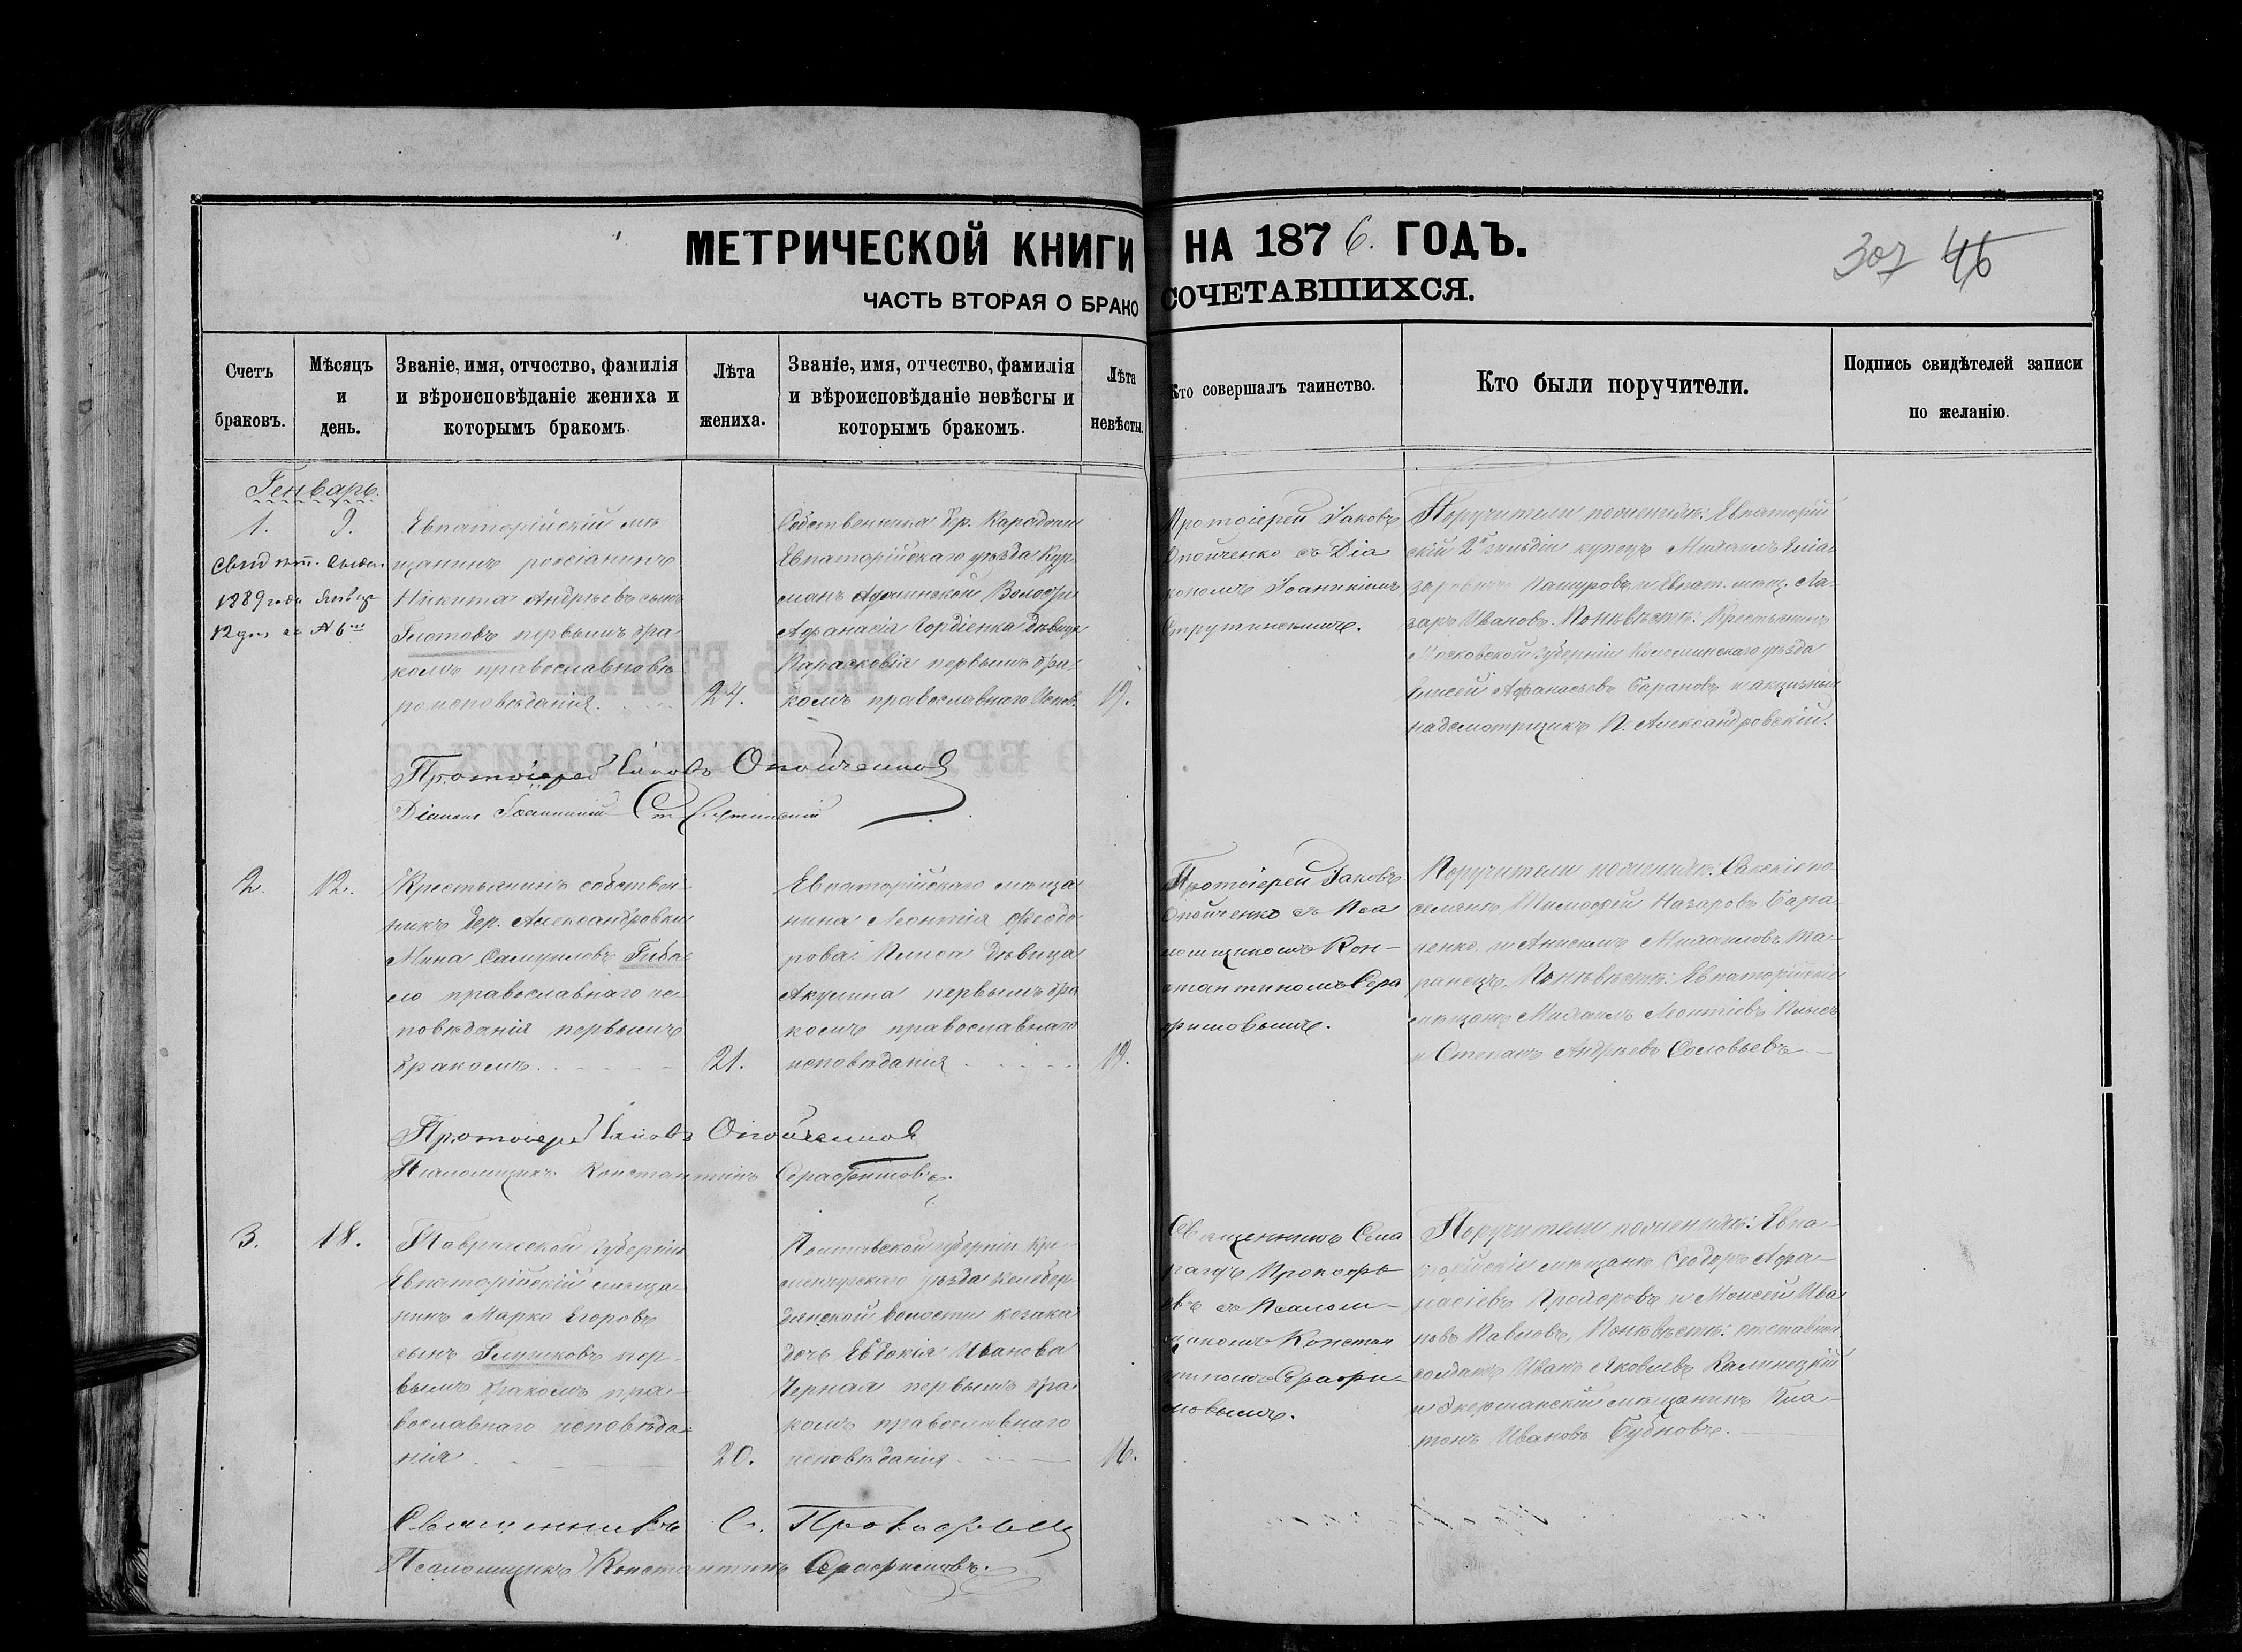 МЕТРИЧЕСКОЙ КНИГИ НА 1876. ГОДЪ.
307 46
ЧАСТЬ ВТОРАЯ О БРАКОСОЧЕТАВШИХСЯ.
Счетъ браковъ.
Мѣсяцъ и день.
Званіе, имя, отчество, фамилія
и вѣроисповѣданіе жениха и
которымъ бракомъ.
Лѣта жениха.
Званіе, имя, отчество, фамилія
и вѣроисповѣданіе невѣсты и
которымъ бракомъ.
Лѣта невѣсты.
Кто совершалъ таинство.
Кто были поручители.
Подпись свидѣтелей записи
по желанію.
Генварь.
1.
9.
1889 года
12 дня за № 6
Евпаторійскій мѣ
щанинъ
Никита Андреевъ сынъ
Глотовъ первымъ бра
комъ православнаго вѣ
роисповѣданія.
24.
Собственника др. Караджи
Евпаторійскаго уѣзда Кур
манъ Аджинской Волости
Афанасія Гордіенка дѣвица
Парасковія первымъ бра
комъ православнаго Испов.
19.
Протоіерей Іаковъ
Опойченко съ Діа
кономъ Іоанникіемъ
Струтинскимъ.
Поручители по женихѣ: Евпаторій
скій 2й гильдіи купецъ Михаилъ
Евпат. мѣщ. Ла
заръ Ивановъ. По невѣстѣ: Крестьянинъ
Московской Губерніи Коломинскаго уѣзда
Елисей Афанасьевъ Барановъ и акцизный
надсмотрщикъ П. Александровскій.
Протоіерей Іаковъ Опойченко
Діаконъ Іоанникій Струтинскій
2.
12.
Крестьянинъ собствен-
никъ дер. Александровки
Мина Самуиловъ
православнаго ис
повѣданія первымъ
бракомъ.
21.
Евпаторійскаго мѣща
нина Леонтія Феодо
рова дѣвица
Акулина первымъ бра
комъ православнаго
исповѣданія
19.
Протоіерей Іаковъ
Опойченко съ Пса
ломщикомъ Кон-
стантиномъ Сера
фимовымъ.
Поручители по женихѣ: Сакскіе по
селяне Тимофей Назаровъ Бара
ненко, и Анисимъ Михаиловъ Та-
ранецъ. По невѣстѣ: Евпаторійскіе
мѣщане Михаилъ Леонтіевъ
и Степанъ Андреевъ Соловьевъ
Протоіерей Іаковъ Опойченко
Псаломщикъ Константинъ Серафимовъ.
3.
18.
Таврической Губерніи
Евпаторійскій мѣща-
нинъ Марко Егоровъ
сынъ Глушковъ пер-
вымъ бракомъ пра-
вославнаго исповѣда-
нія
20.
Полтавской губерніи Кре-
менчугскаго уѣзда
волости козака
дочь Евдокія Иванова
Черная первымъ бра
комъ православнаго
исповѣданія
16.
Священникъ Сма
рагдъ Прокофь
евъ съ Псалом-
щикомъ Констан
тиномъ Серафи-
мовымъ.
Поручители по женихѣ: Евпа-
торійскіе мѣщане Феодоръ Афа-
насіевъ Прохоровъ и Моисей Ива
новъ Павловъ, По невѣстѣ: отставной
солдатъ Иванъ Яковлевъ Калиницкій
и Акерманскій мѣщанинъ Пла-
тонъ Ивановъ Бубновъ.
Священникъ С. Прокофьевъ
Псаломщикъ Константинъ Серафимовъ.